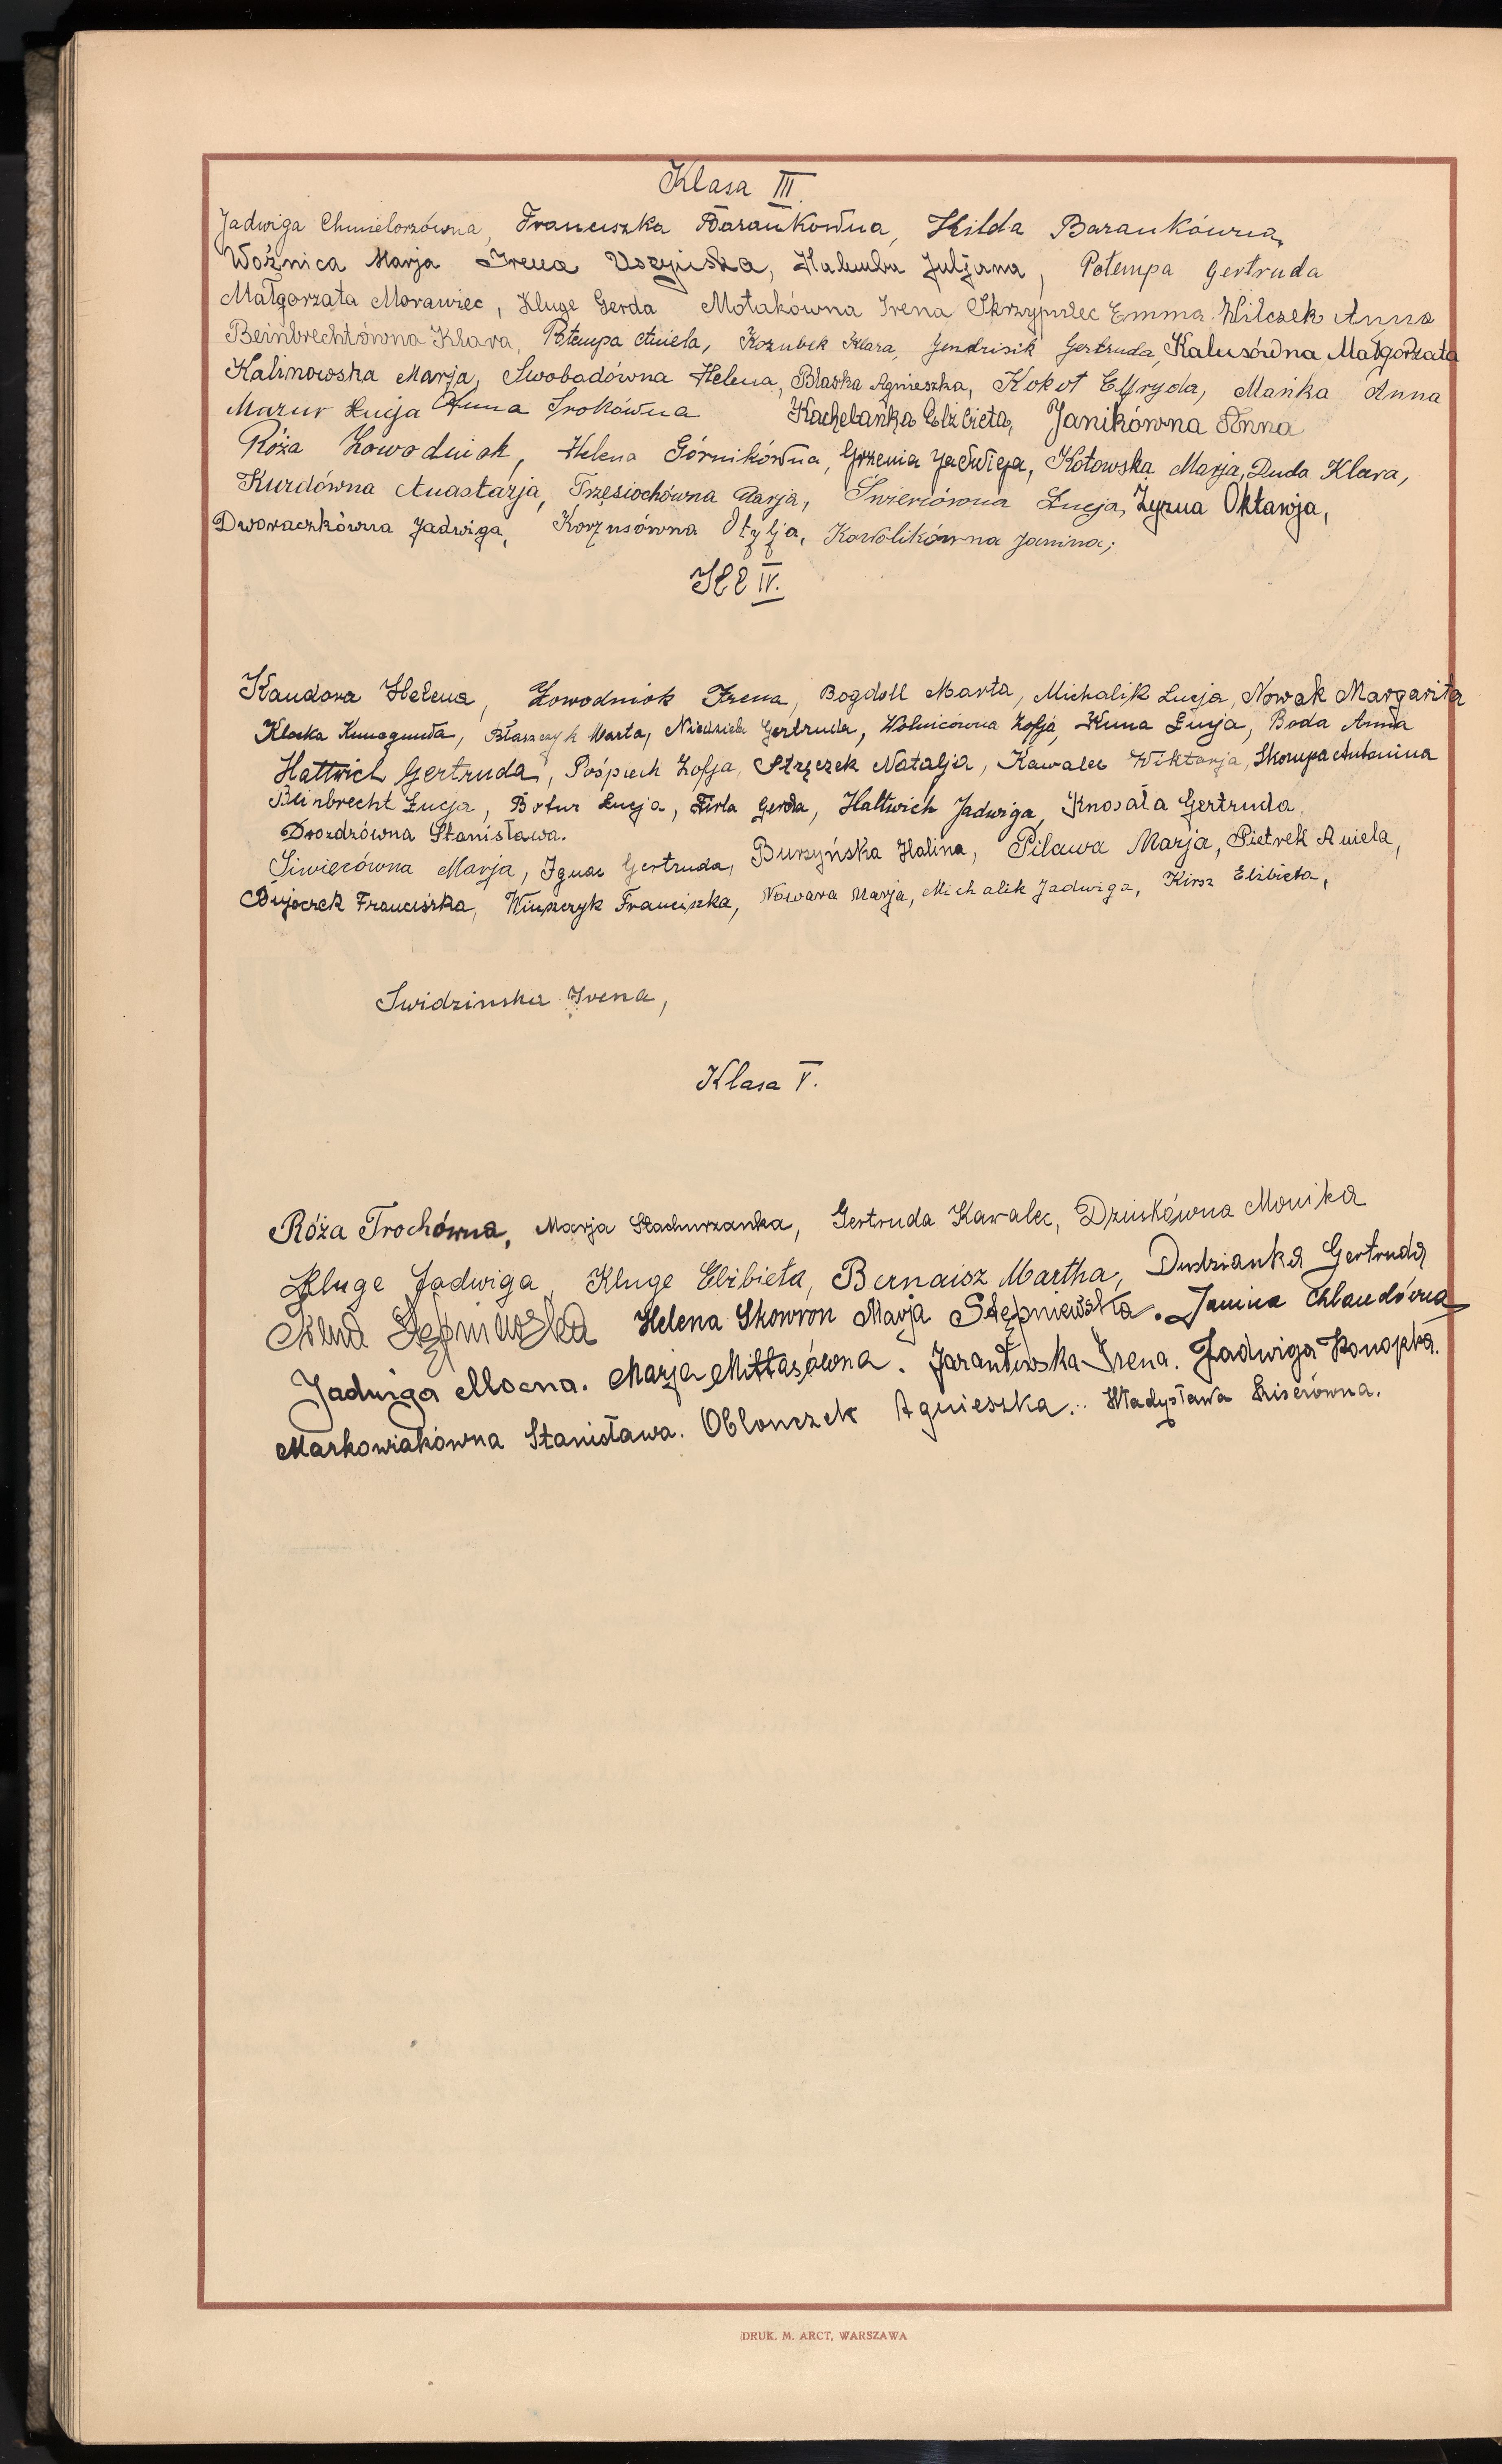 Klasa III.
Jadwiga Chmielorzówna, Franciszka Barankówna, Hilda Barankówna,
Woźnica Marja Irena Uszyńska, Halemba Juljana, Potempa Gertruda
Małgorzata Morawiec, Kluge Gerda Motakówna Irena Skrzypulec Emma Wilczek Anna
Beinbrechtówna Klara, Potempa Aniela, Kozubek Klara, Jendrisik Gertruda, Kalusówna Małgorzata
Kalinowska Marja, Swobodówna Helena, Blaska Agnieszka, Kokot Elfryda, Mańka Anna
Mazur Łucja Anna Srokówna Kachelańka Elżbieta, Janikówna Anna
Róża Zowodniok, Helena Górnikówna, Grzenia Jadwiga, Kotowska Marja, Duda Klara,
Kurdówna Anastazja, Trzęsiochówna Marja, Świercówna Łucja, Żyzua Oktawja,
Dworaczkówna Jadwiga, Korzusówna Otylja, Kowolikówna Janina;
Kl IV.
Kandora Helena, Zowodniok Irena, Bogdoll Marta, Michalik Łucja, Nowak Margarita
Klocka Kunegunda, Błaszczyk Marta, Niedziela Gertruda, Wolnicówna Zofja, Kuna Łucja, Boda Anna
Hattwich Gertruda, Pośpiech Zofja, Strzęczek Natalja, Kawalec Wiktorja, Skorupa Antonina
Beinbrecht Łucja, Botur Łucja, Firla Gerda, Hattwich Jadwiga, Knosała Gertruda
Drozdzówna Stanisława.
Siwiecówna Marja, Ignac Gertruda, Burzyńska Halina, Pilawa Marja, Pietrek Aniela,
Dujoczek Franciszka, Winszczyk Franciszka, Nowara Marja, Michalik Jadwiga, Kirsz Elżbieta,
Swidzinska Irena,
Klasa V.
Róża Trochówna, Marja Stachurzanka, Gertruda Kawalec, Dziuskówna Monika
Kluge Jadwiga, Kluge Elżbieta, Bernaisz Martha, Dudzianka Gertruda
Stępniewska Helena Skowron Marja Stępniewska. Janina Chlandówna
Jadwiga Mocna. Marja Mittasówna. Jarantowska Irena. Jadwiga Konopka.
Markowiakówna Stanisława. Oblonczek Agnieszka. Władysława Liserówna.
DRUK. M. ARCT, WARSZAWA